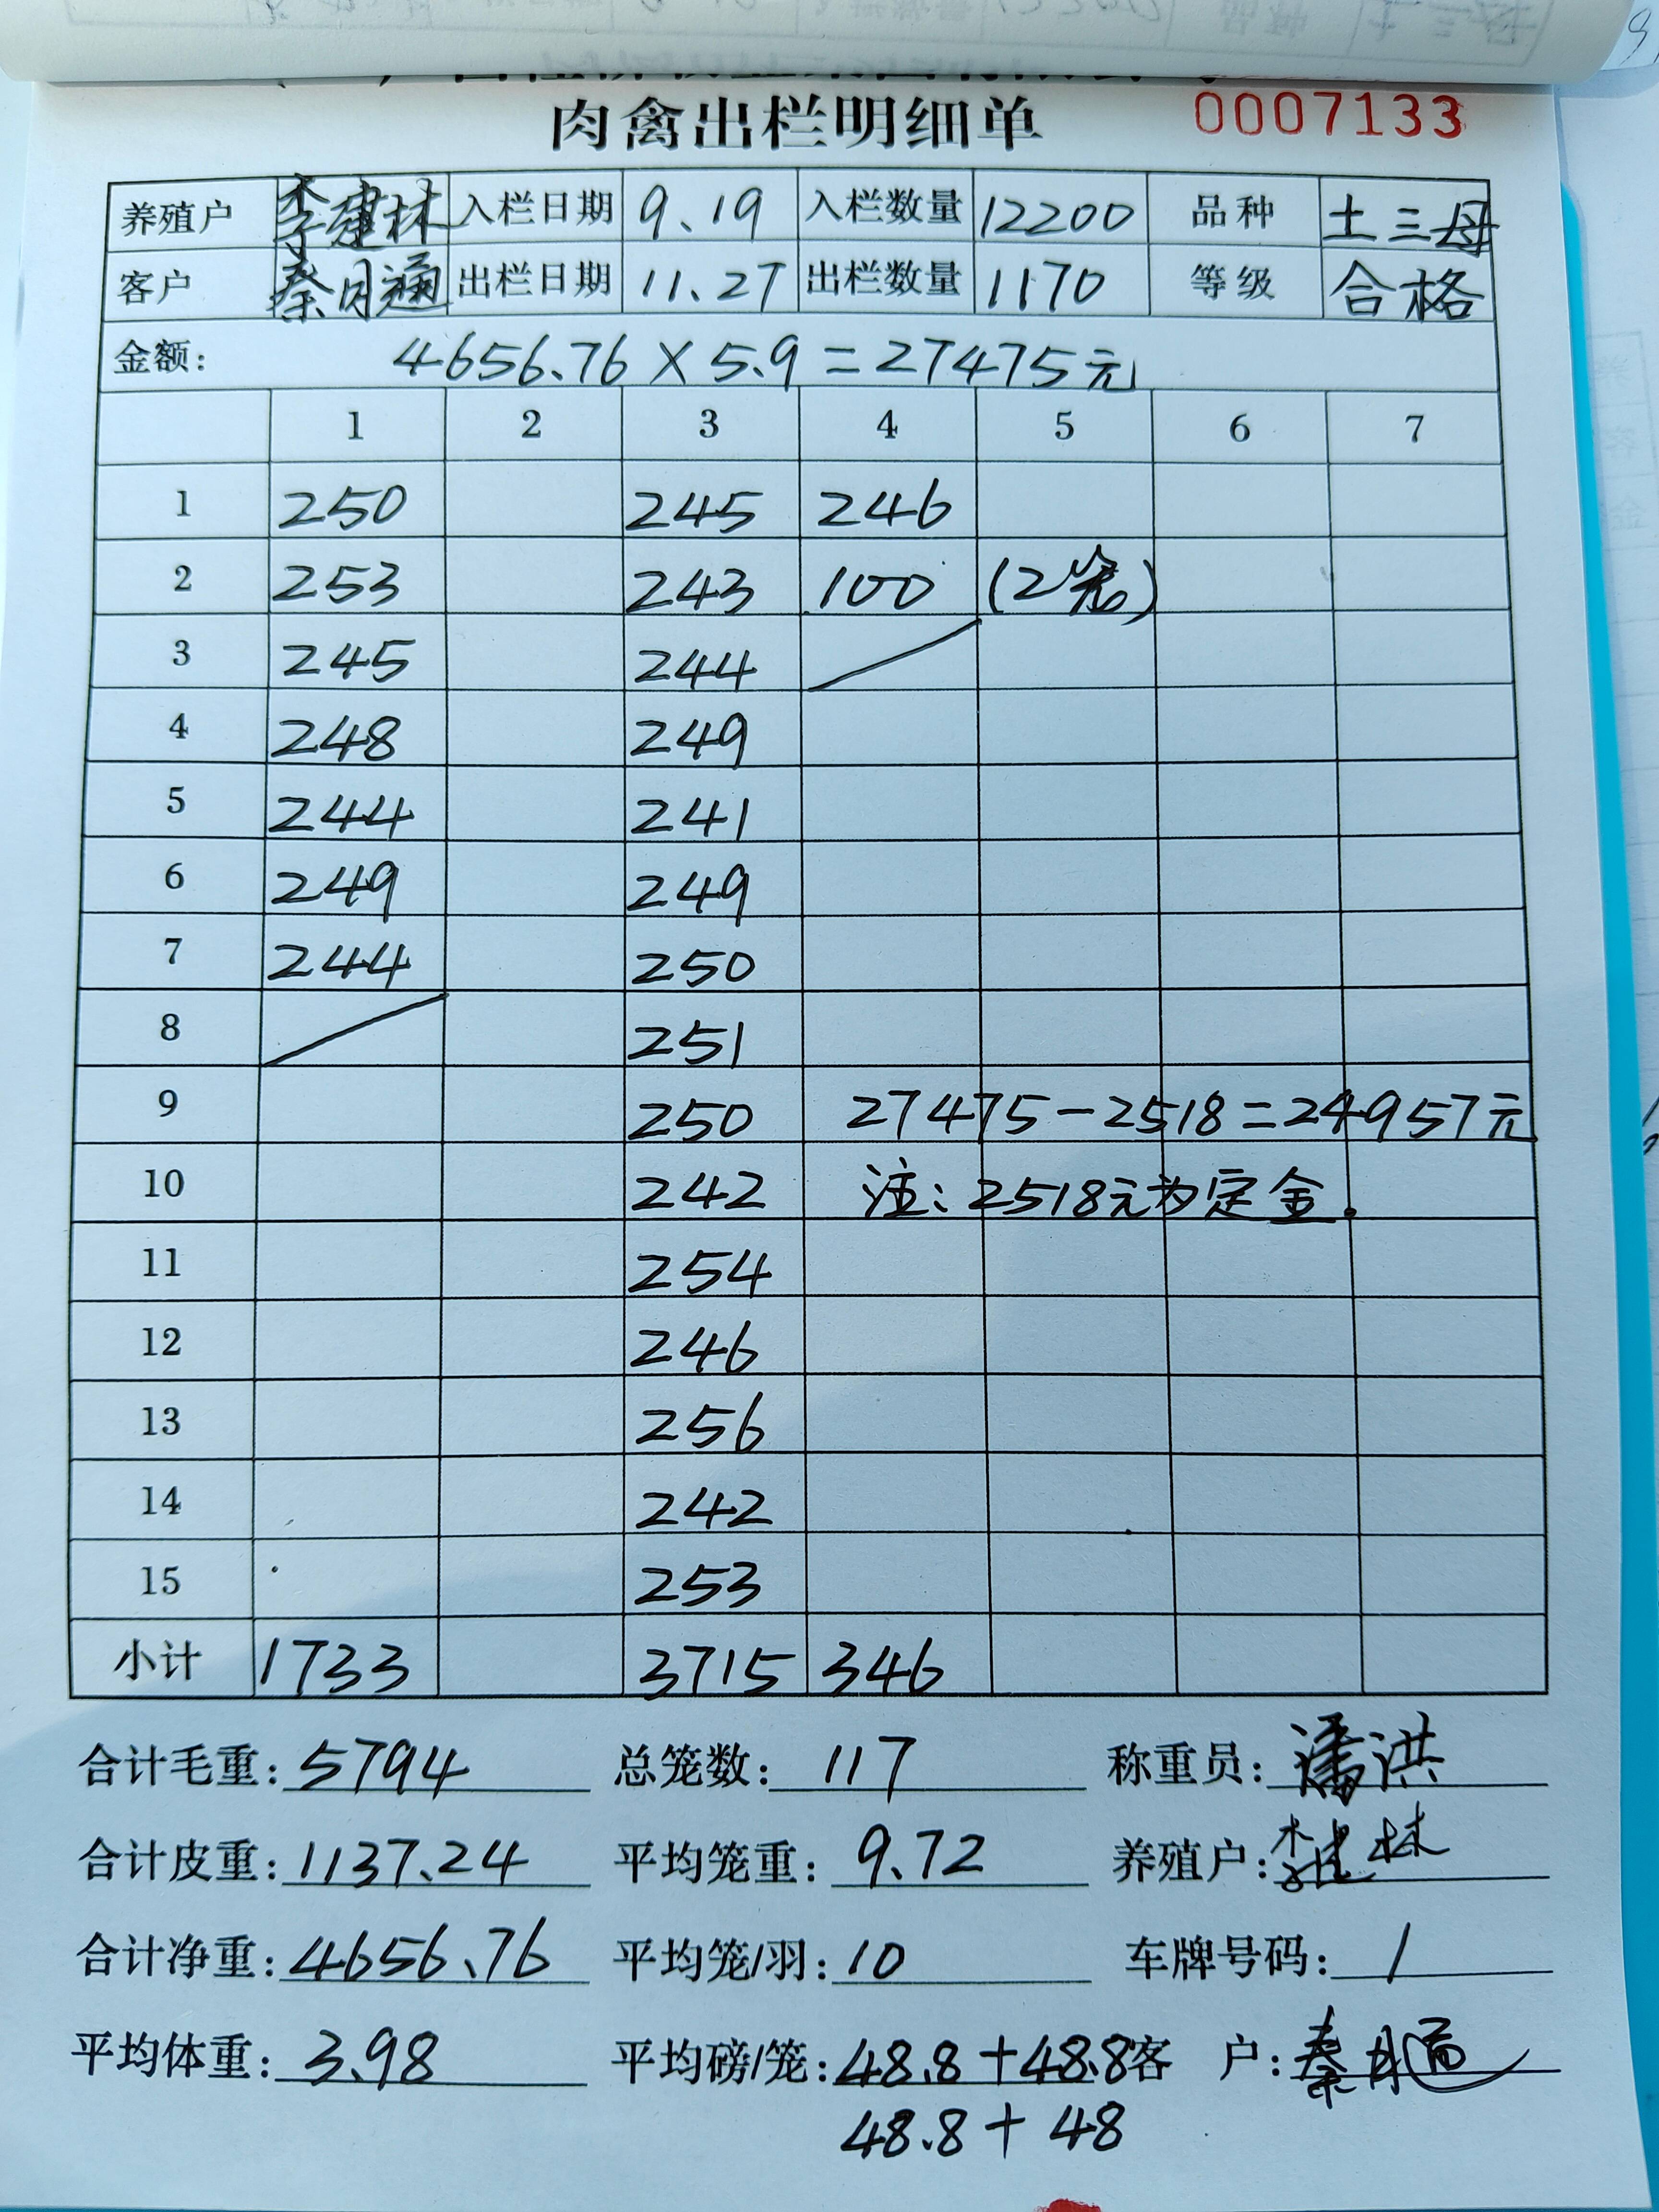 肉禽出栏明细单 0007133
养殖户 李建林 入栏日期 9.19 入栏数量 12200 品种 土三母
客户 秦月通 出栏日期 11.27 出栏数量 1170 等级 合格
金额: 4656.76×5.9=27475元
1 2 3 4 5 6 7
1 250 245 246
2 253 243 100 (2笼)
3 245 244
4 248 249
5 244 241
6 249 249
7 244 250
8 251
9 250 27475-2518=24957元
10 242 注:2518元为定金.
11 254
12 246
13 256
14 242
15 253
小计 1733 3715 346
合计毛重:5794 总笼数:117 称重员:潘洪
合计皮重:1137.24 平均笼重:9.72 养殖户:李建林
合计净重:4656.76 平均笼/羽:10 车牌号码:1
平均体重:3.98 平均磅/笼:48.8+48.8 客户:秦月通
48.8+48